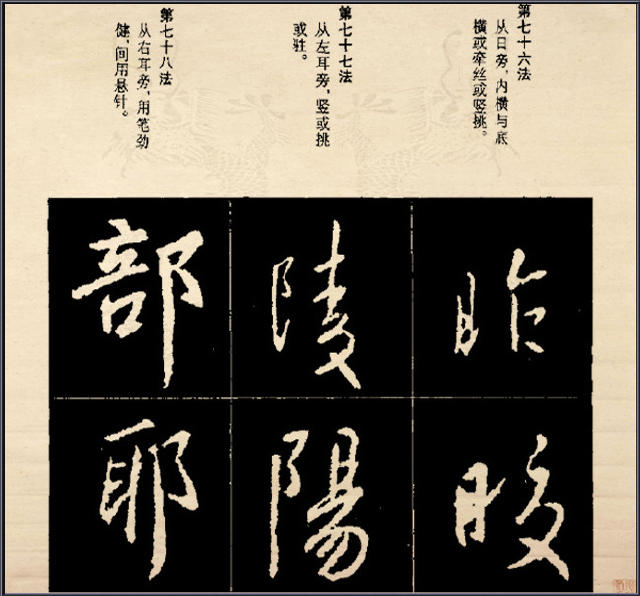 第七十六法
从日旁，内横与底
横或牵丝或竖挑。
第七十七法
从左耳旁，竖或挑
或驻。
第七十八法
从右耳旁，用笔劲
健，间用悬针。
昨
陵
部
陽
耶